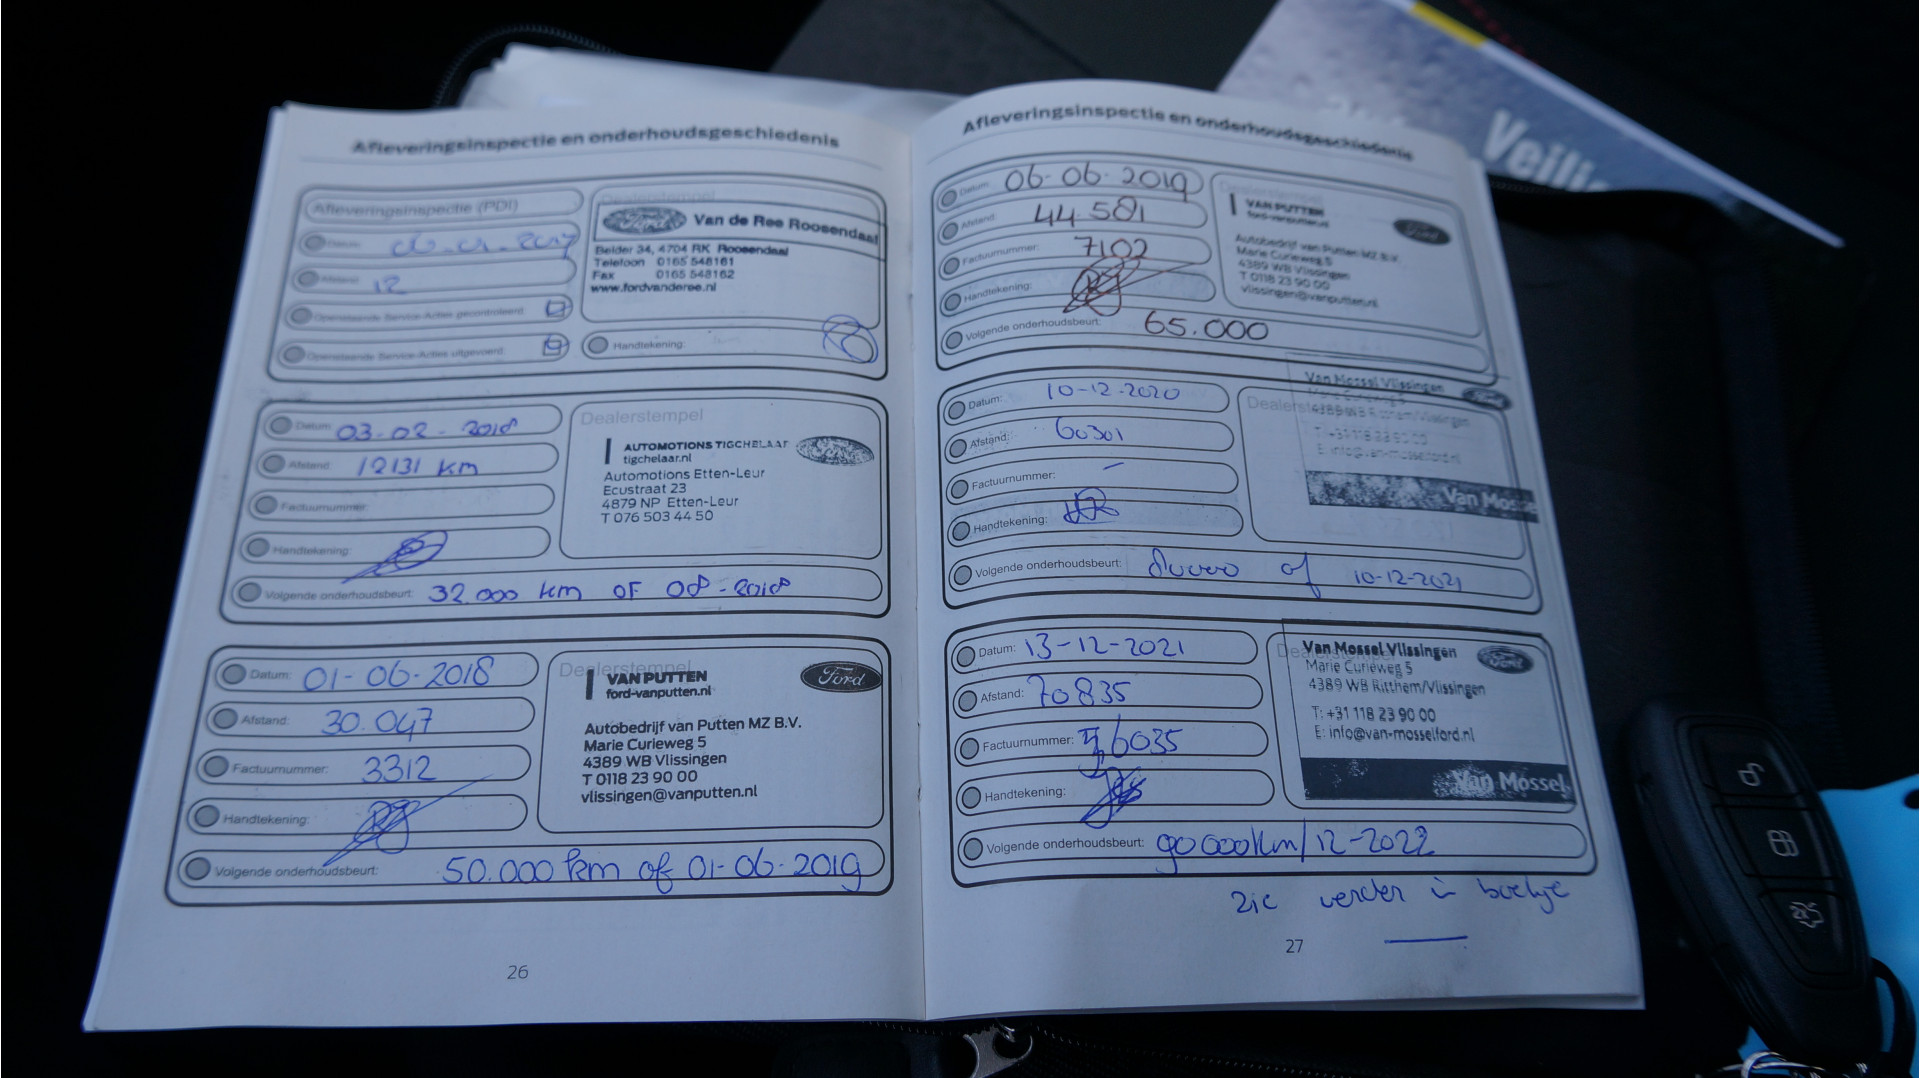 Afleveringsinspectie en onderhoudsgeschiedenis
Afleveringsinspectie (PDI)
Datum:
Afstand: 12
Openstaande Service-Acties gecontroleerd:
Openstaande Service-Acties uitgevoerd:
Dealerstempel
Ford Van de Ree Roosendaal
Belder 34, 4704 RK Roosendaal
Telefoon 0165 548161
Fax 0165 548162
www.fordvanderee.nl
Handtekening:
Datum: 03-02-2018
Afstand: 12131 km
Factuurnummer:
Handtekening:
Volgende onderhoudsbeurt: 32.000 km OF 08-2018
Dealerstempel
AUTOMOTIONS TIGCHELAAR
tigchelaar.nl
Automotions Etten-Leur
Ecustraat 23
4879 NP Etten-Leur
T 076 503 44 50
Datum: 01-06-2018
Afstand: 30.047
Factuurnummer: 3312
Handtekening:
Volgende onderhoudsbeurt: 50.000 km of 01-06-2019
Dealerstempel
VAN PUTTEN
ford-vanputten.nl
Ford
Autobedrijf van Putten MZ B.V.
Marie Curieweg 5
4389 WB Vlissingen
T 0118 23 90 00
vlissingen@vanputten.nl
26
Afleveringsinspectie en onderhoudsgeschiedenis
Datum: 06-06-2019
Afstand: 44 581
Factuurnummer: 7102
Handtekening:
Volgende onderhoudsbeurt: 65.000
Dealerstempel
VAN PUTTEN
ford-vanputten.nl
Ford
Autobedrijf van Putten MZ B.V.
Marie Curieweg 5
4389 WB Vlissingen
T 0118 23 90 00
vlissingen@vanputten.nl
Datum: 10-12-2020
Afstand: 60301
Factuurnummer: -
Handtekening:
Volgende onderhoudsbeurt: 80000 of 10-12-2021
Van Mossel Vlissingen
T: +31 118 23 90 00
E: info@van-mosselford.nl
Van Mossel
Datum: 13-12-2021
Afstand: 70835
Factuurnummer:
Handtekening:
Volgende onderhoudsbeurt: 90000km/12-2022
Dealerstempel
Van Mossel Vlissingen
Ford
Marie Curieweg 5
4389 WB Ritthem/Vlissingen
T: +31 118 23 90 00
E: info@van-mosselford.nl
Van Mossel
Zie verder in boekje
27
Veili